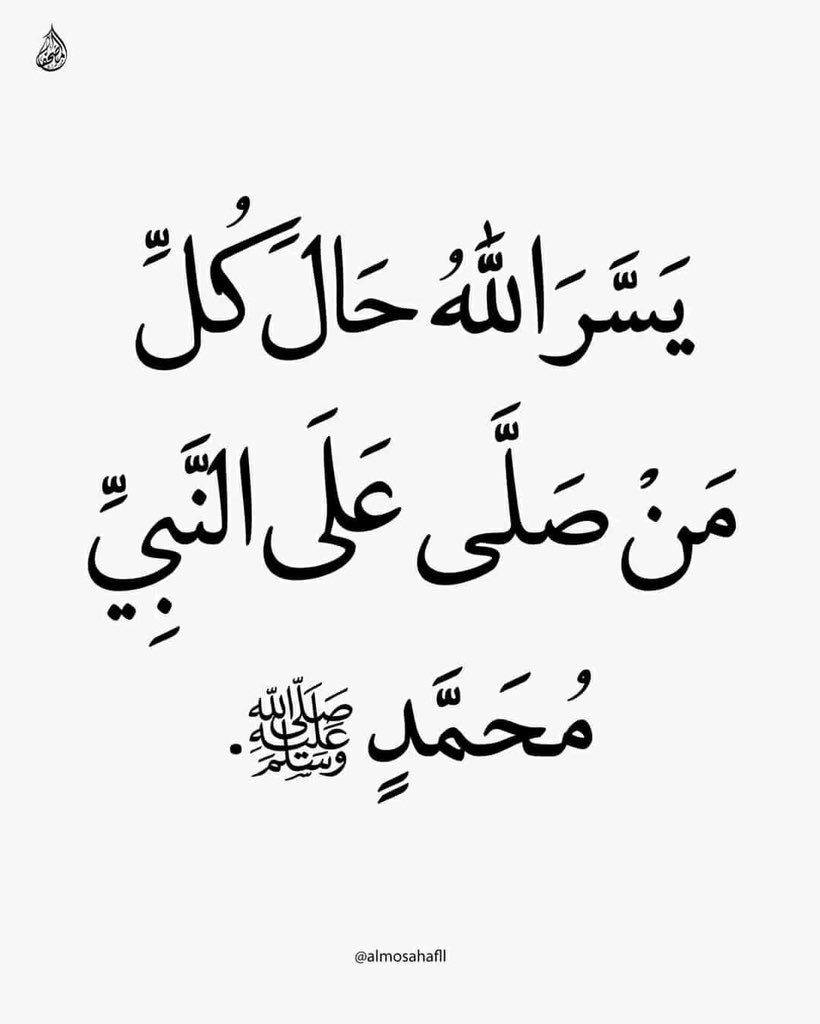 يَسَّرَ اللّٰهُ حَالَ كُلِّ
مَنْ صَلَّى عَلَى النَّبِيِّ
مُحَمَّدٍ ﷺ.
@almosahafll